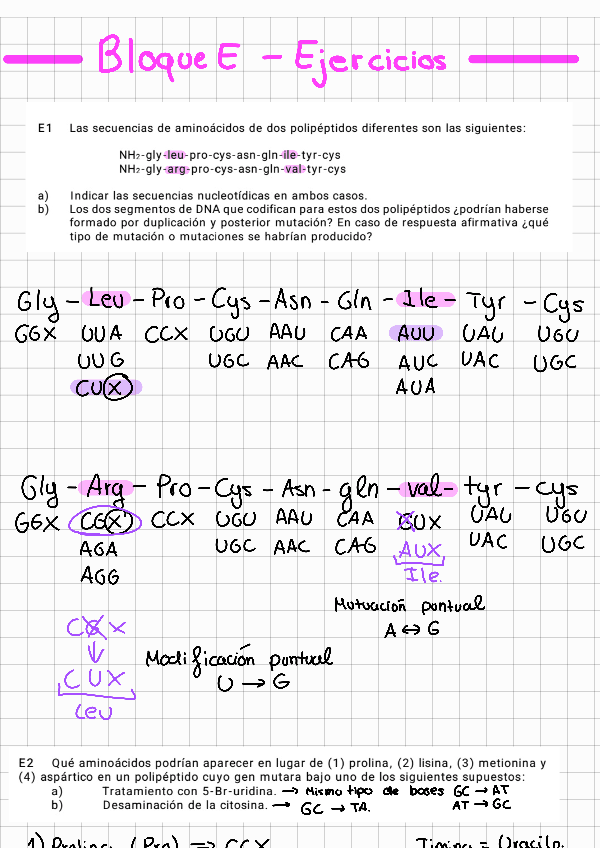 Bloque E - Ejercicios
E1 Las secuencias de aminoácidos de dos polipéptidos diferentes son las siguientes:
NH₂-gly-leu-pro-cys-asn-gln-ile-tyr-cys
NH₂-gly-arg-pro-cys-asn-gln-val-tyr-cys
a) Indicar las secuencias nucleotídicas en ambos casos.
b) Los dos segmentos de DNA que codifican para estos dos polipéptidos ¿podrían haberse
formado por duplicación y posterior mutación? En caso de respuesta afirmativa ¿qué
tipo de mutación o mutaciones se habrían producido?
Gly - Leu - Pro - Cys - Asn - Gln - Ile - Tyr - Cys
GGX UUA CCX UGU AAU CAA AUU UAU UGU
UUG UGC AAC CAG AUC UAC UGC
CUX AUA
Gly - Arg - Pro - Cys - Asn - gln - val - tyr - cys
GGX CGX CCX UGU AAU CAA GUX UAU UGU
AGA UGC AAC CAG AUX UAC UGC
AGG Ile.
Mutuación puntual
A ↔ G
CGX
↓
CUX
Leu
Modificación puntual
U → G
E2 Qué aminoácidos podrían aparecer en lugar de (1) prolina, (2) lisina, (3) metionina y
(4) aspártico en un polipéptido cuyo gen mutara bajo uno de los siguientes supuestos:
a) Tratamiento con 5-Br-uridina. → Mismo tipo de bases GC → AT
b) Desaminación de la citosina. → GC → TA. AT → GC
1) Prolina (Pro) ⇒ CCX Timina = Uracilo.